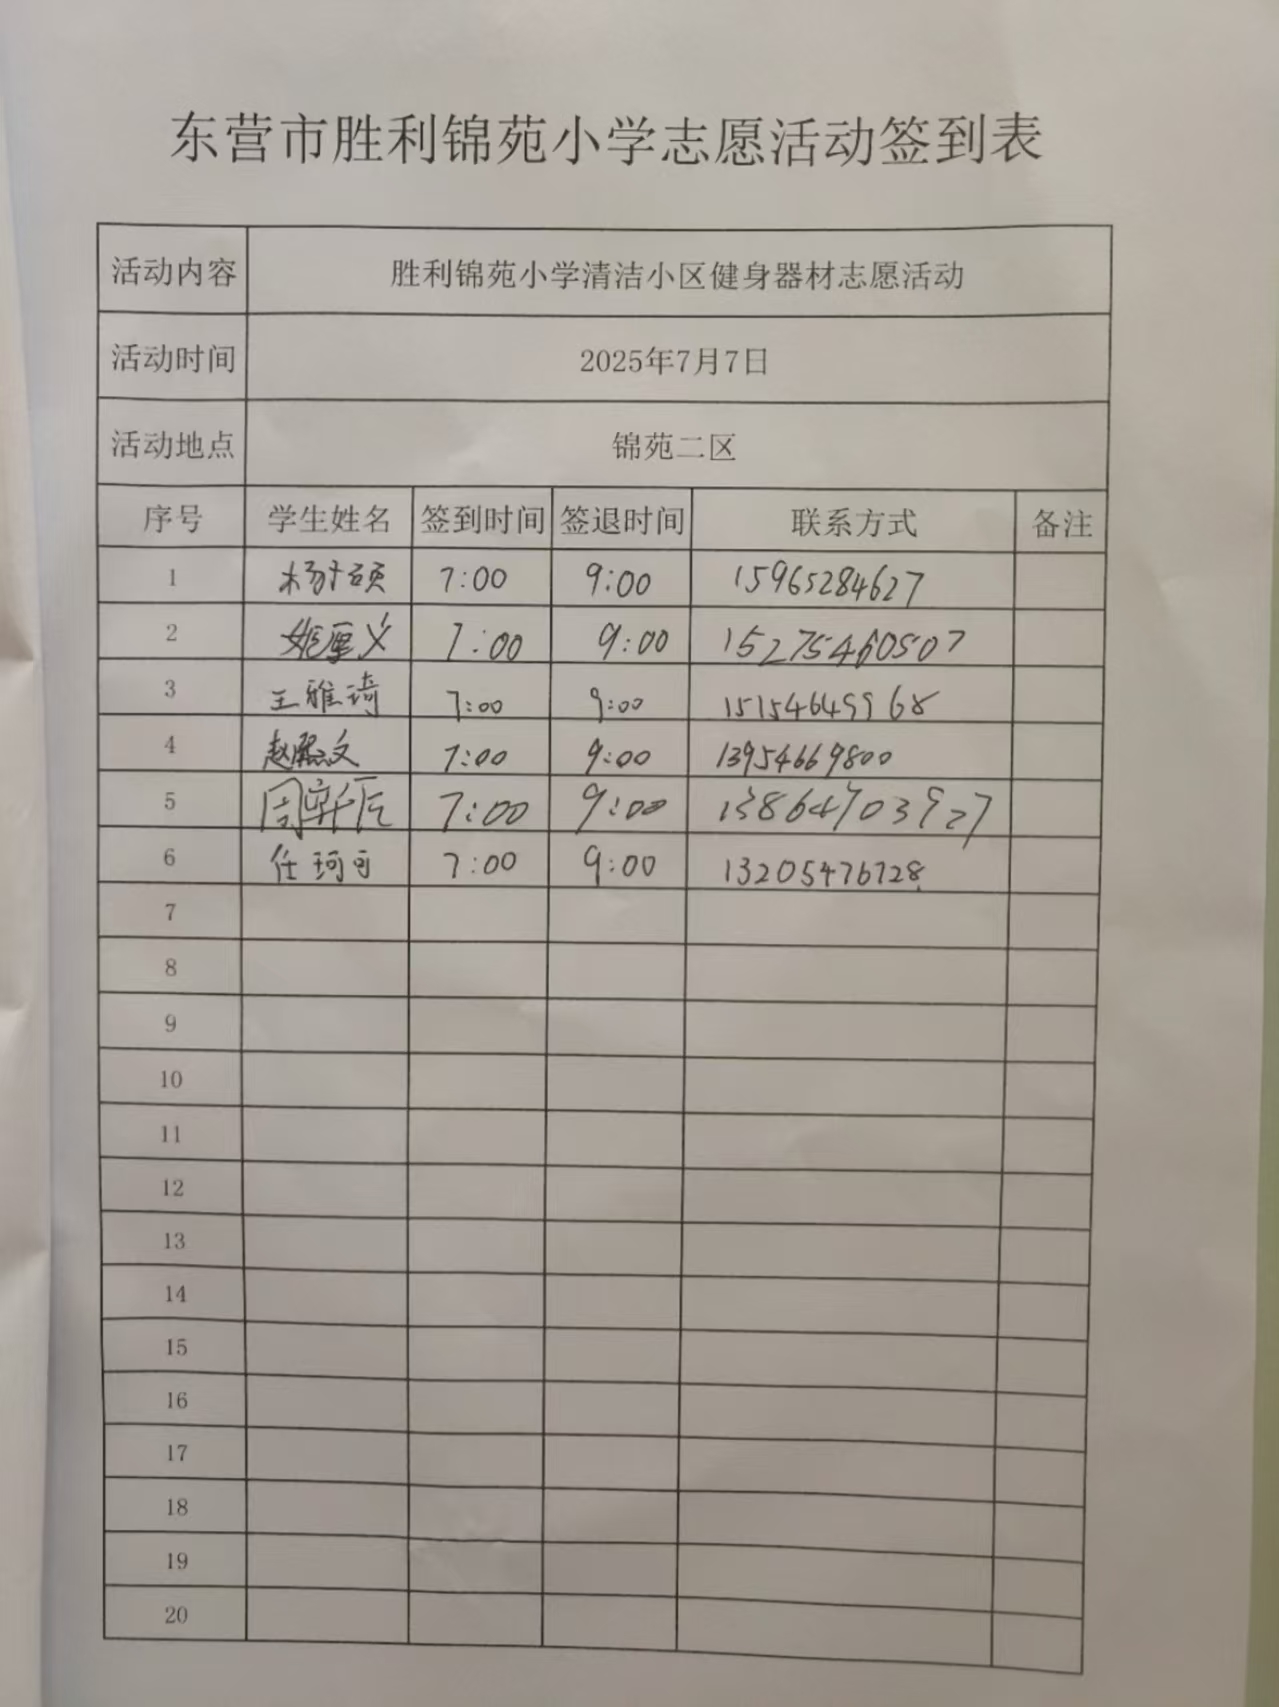 东营市胜利锦苑小学志愿活动签到表
活动内容 胜利锦苑小学清洁小区健身器材志愿活动
活动时间 2025年7月7日
活动地点 锦苑二区
序号 学生姓名 签到时间 签退时间 联系方式 备注
1 7:00 9:00 15965284627
2 姚厚义 7:00 9:00 15275460507
3 王雅琦 7:00 9:00 15154649968
4 赵熙文 7:00 9:00 13954669800
5 周 7:00 9:00 13864703927
6 任珂可 7:00 9:00 13205476728
7
8
9
10
11
12
13
14
15
16
17
18
19
20